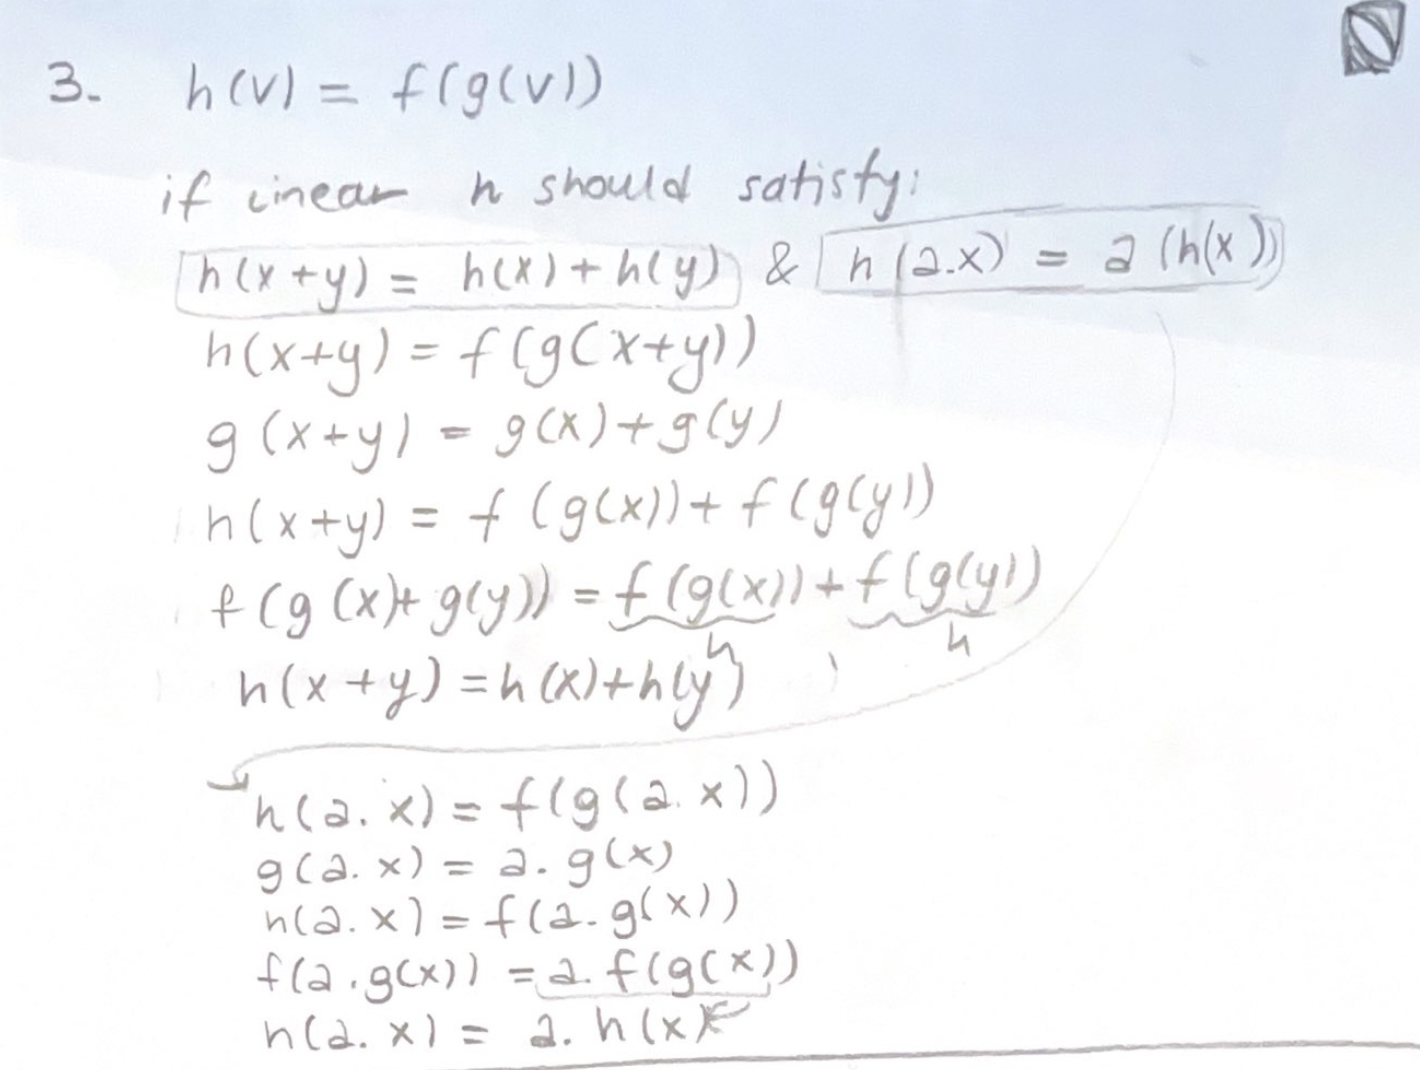 3. h(v) = f(g(v))
if linear h should satisfy:
h(x+y) = h(x)+h(y) & h(a.x) = a(h(x))
h(x+y) = f(g(x+y))
g(x+y) = g(x)+g(y)
h(x+y) = f(g(x))+f(g(y))
f(g(x)+g(y)) = f(g(x))+f(g(y))
h h
h(x+y) = h(x)+h(y)
h(a.x) = f(g(a.x))
g(a.x) = a.g(x)
h(a.x) = f(a.g(x))
f(a.g(x)) = a.f(g(x))
h(a.x) = a.h(x)